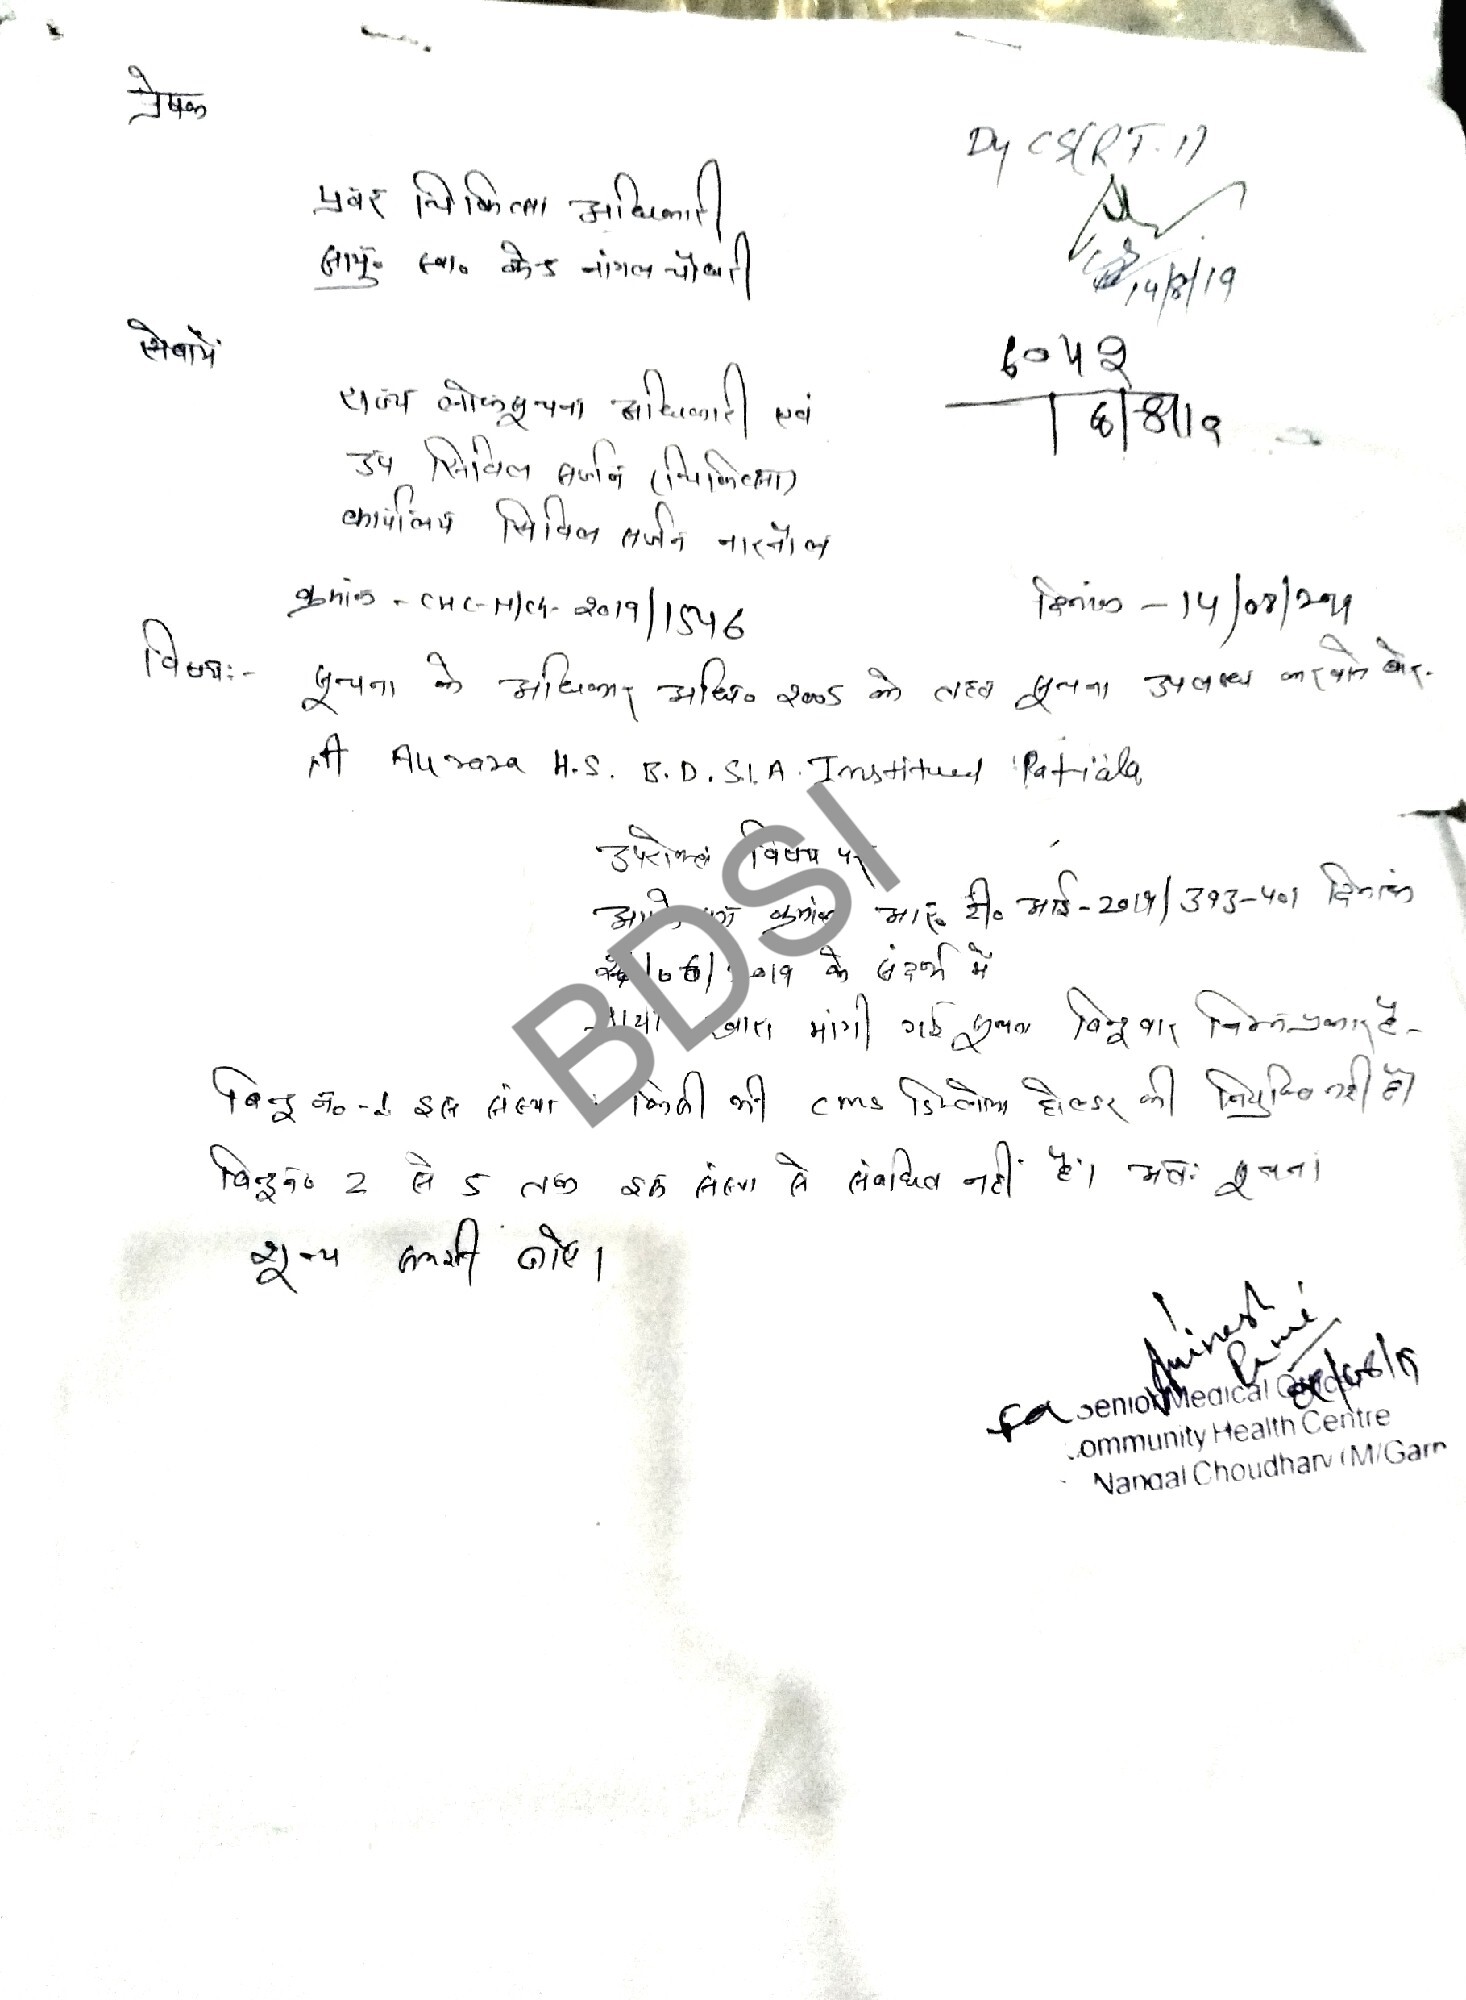 प्रेषक
Dy CS(RTI)
14/8/19
प्रवर चिकित्सा अधिकारी
सामु० स्वा० केन्द्र नांगल चौधरी
सेवामें
6042
राज्य लोकसूचना अधिकारी एवं
उप सिविल सर्जन (चिकित्सा)
कार्यालय सिविल सर्जन नारनौल
क्रमांक - CHC-N/Ch- 2019/1546 दिनांक - 14/08/2019
विषय:- सूचना के अधिकार अधि० 2005 के तहत सूचना उपलब्ध करवाने बारे.
श्री Aurora H.S. B.D.S.I.A. Institued Patiala
उपरोक्त विषय पर
आपके पत्र क्रमांक आर० टी० आई-2019/393-401 दिनांक
/06/2019 के संदर्भ में
द्वारा मांगी गई सूचना बिन्दूवार निम्न प्रकार है-
बिन्दू नं०-1 इस संस्था किसी भी CMS डिप्लोमा होल्डर की नियुक्ति नही है।
बिन्दू नं० 2 से 5 तक इस संस्था से संबंधित नहीं है। अतः सूचना
शून्य समझी जाए।
BDSI
Senior Medical Officer
Community Health Centre
Nangal Choudhary (M/Garh